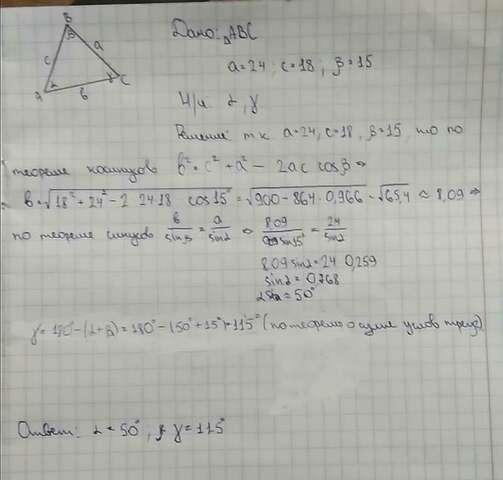 B
β
c a
α γ
A b C
Дано: △ABC
a=24; c=18; β=15
Н/и α, γ
Решение т.к a=24, c=18, β=15, то по
теореме косинусов b²=c²+a²-2ac cosβ ⇒
b=√18²+24²-2 24·18 cos15° = √900-864·0,966 = √65,4 ≈ 8,09 ⇒
по теореме синусов b/sinβ = a/sinα ⇔ 8,09/sin15° = 24/sinα
8,09 sinα = 24 0,259
sinα = 0,768
α ≈ 50°
γ = 180°-(α+β) = 180°-(50°+15°) = 115° (по теореме о сумме углов треуг)
Ответ: α = 50°, γ = 115°